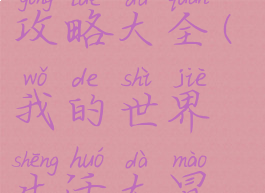 gōng lüè dà quán
攻略大全(
wǒ de shì jiè
我的世界
shēng huó dà mào
生活大冒